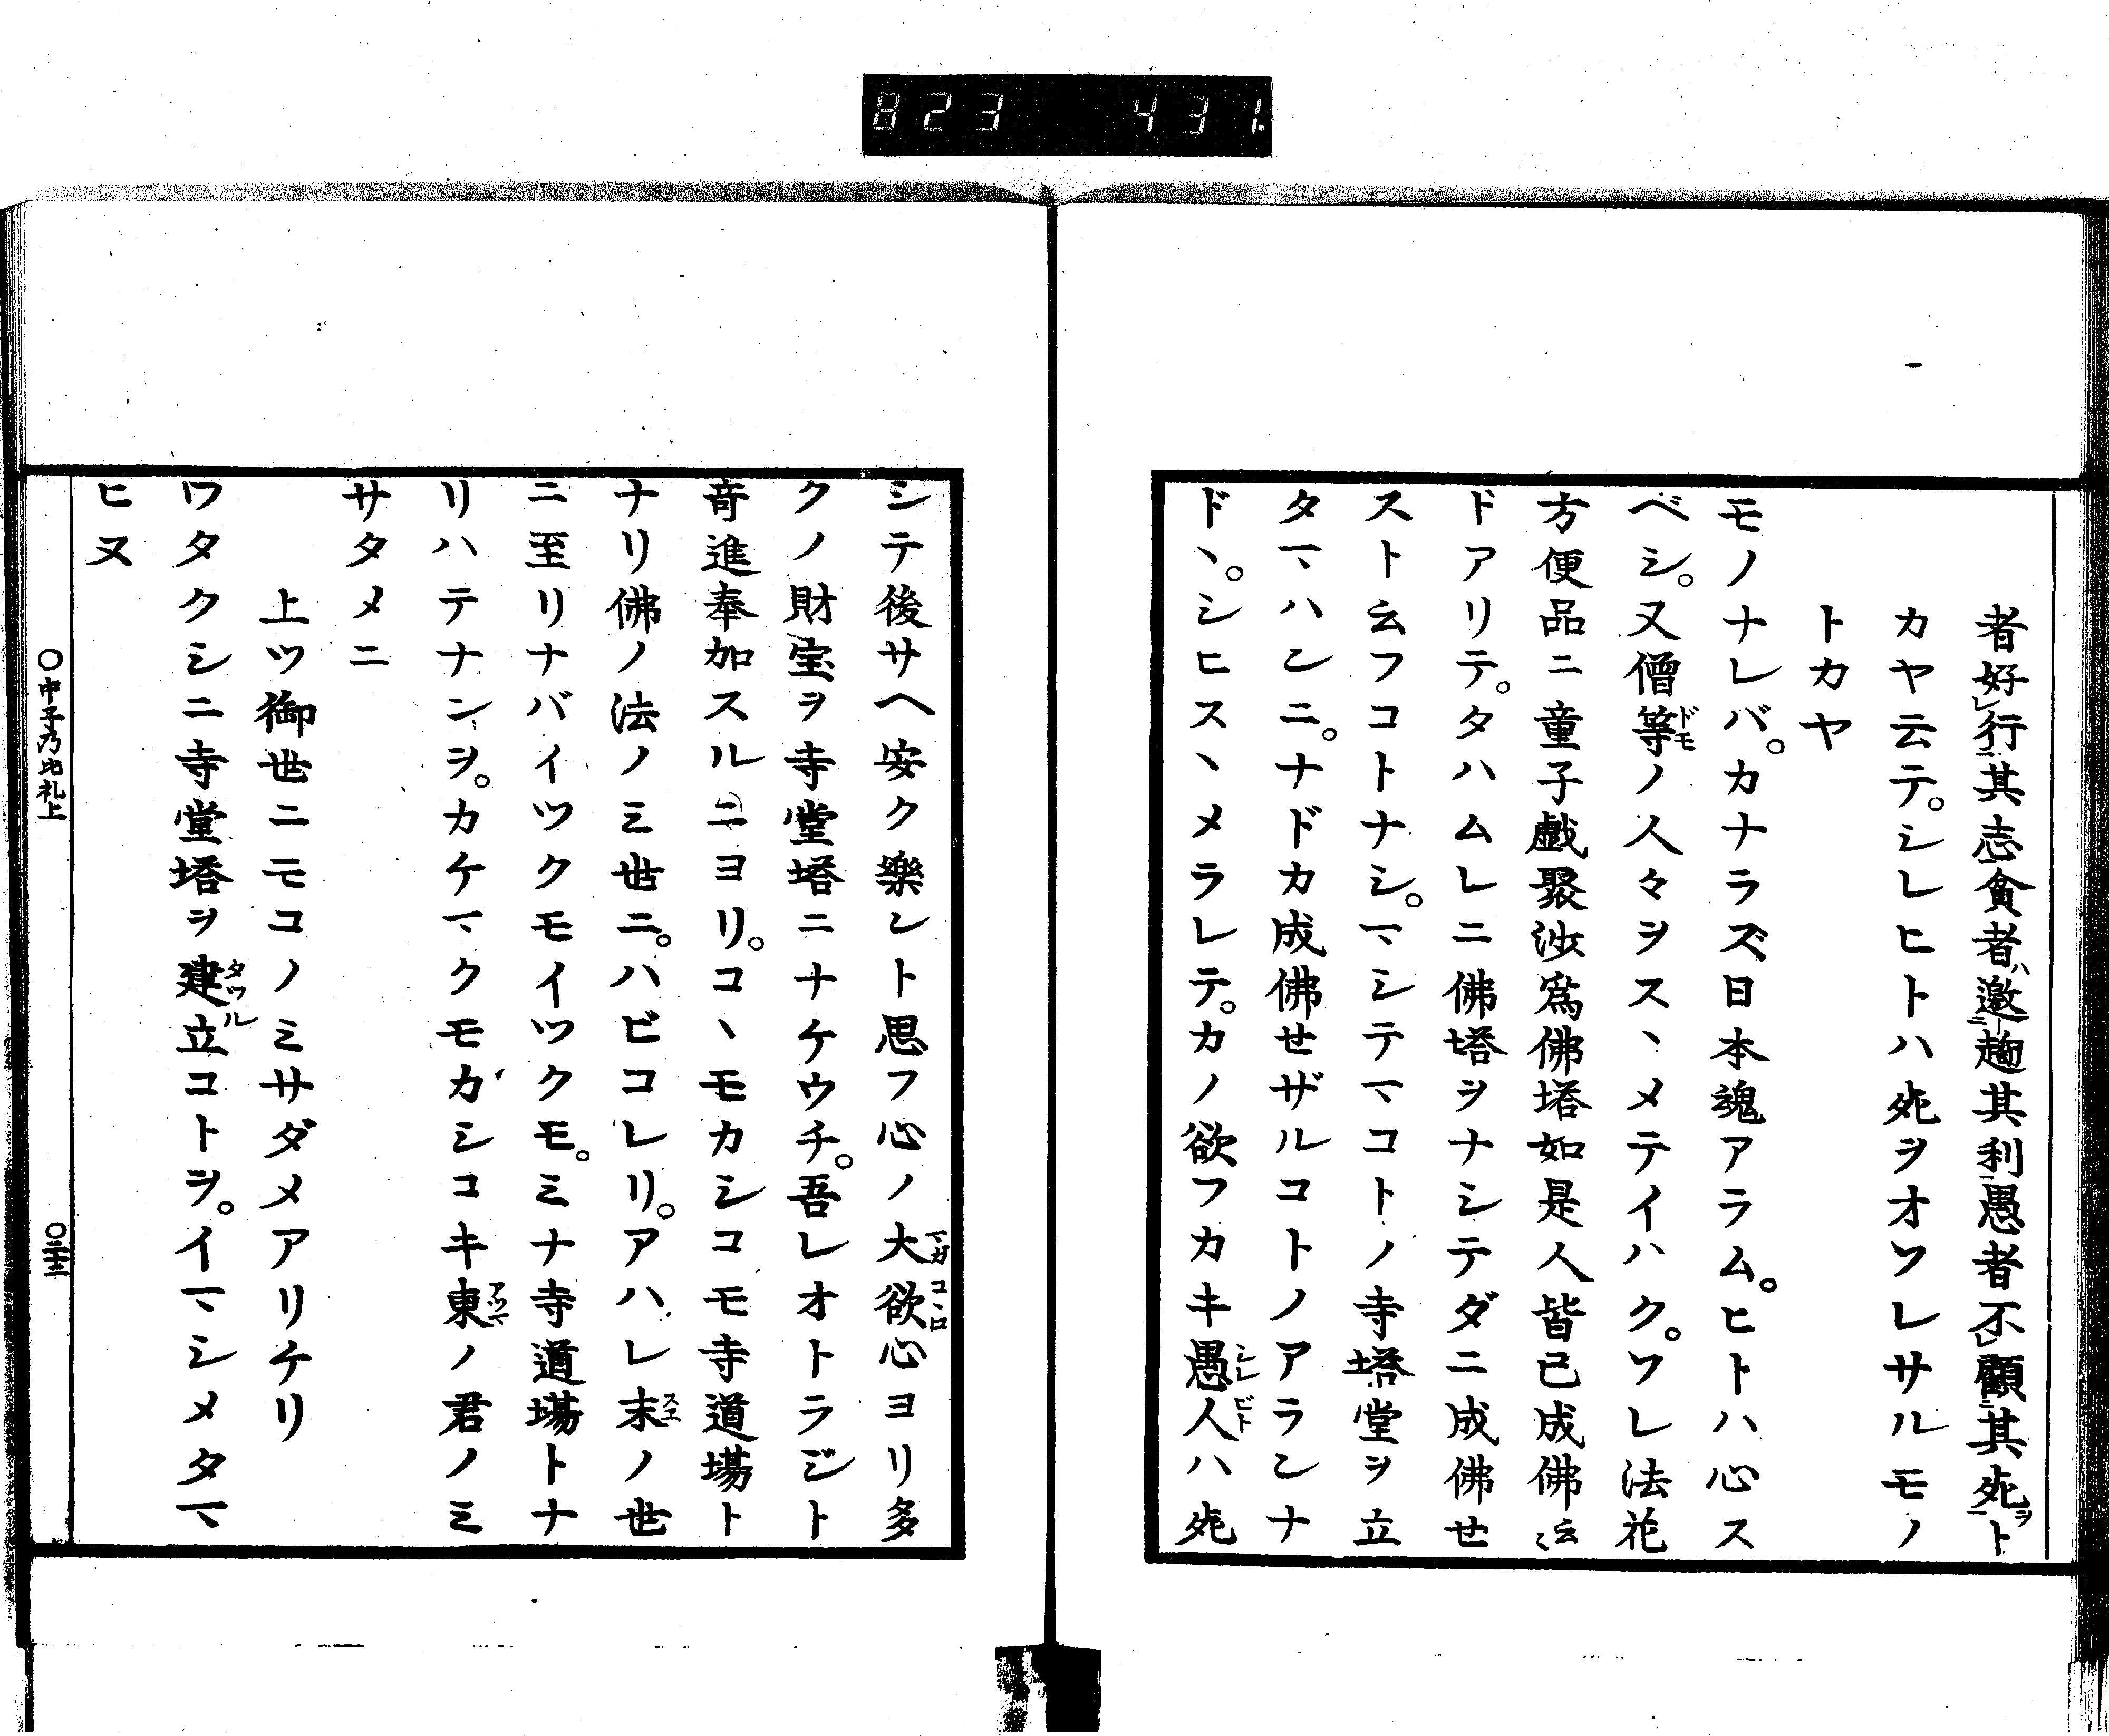 823 431.
者好レ行二其志一貪者ハ邀二趨其利一愚者不レ顧二其死一ヲト
カヤ云テ。シレヒトハ死ヲオソレサルモノ
トカヤ
モノナレバ。カナラズ日本魂アラム。ヒトハ心ス
ベシ。又僧等ドモノ人々ヲスヽメテイハク。ソレ法花
方便品ニ童子戯聚沙爲佛塔如是人皆已成佛云〻
ドアリテ。タハムレニ佛塔ヲナシテダニ成佛せ
スト云フコトナシ。マシテマコトノ寺塔堂ヲ立
タマハンニ。ナドカ成佛せザルコトノアランナ
ドヽ。シヒスヽメラレテ。カノ欲フカキ愚人シレビトハ死
シテ後サヘ安ク樂レト思フ心ノ大欲心マガコヽロヨリ多
クノ財宝ヲ寺堂塔ニナケウチ。吾レオトラジト
竒進奉加スルニヨリ。コヽモカシコモ寺道場ト
ナリ佛ノ法ノミ世ニ。ハビコレリ。アハレ末スエノ世
ニ至リナバイツクモイツクモ。ミナ寺道場トナ
リハテナンヲ。カケマクモカシコキ東アツマノ君ノミ
サタメニ
上ツ御世ニモコノミサダメアリケリ
ワタクシニ寺堂塔ヲ建立タツルコトヲ。イマシメタマ
ヒヌ
〇中子乃比礼上
〇二十三